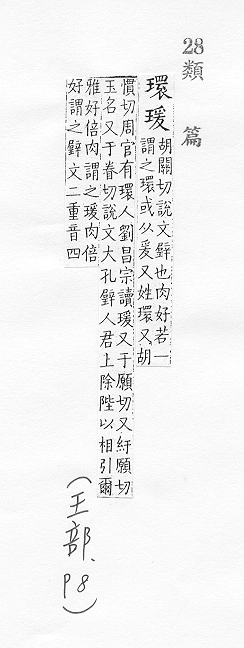 28
類篇
環瑗胡關切說文璧也肉好若一
謂之環或从爰又姓環又胡
慣切周官有環人劉昌宗讀瑗又于願切又紆願切
玉名又于眷切說文大孔璧人君上除陛以相引爾
雅好倍肉謂之瑗肉倍
好謂之璧文二重音四
(王部、P8)